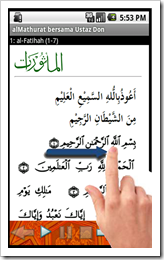 5:53 PM
alMathurat bersama Ustaz Don
1: al-Fatihah (1-7)
المأثورات
أَعُوذُ بِاللَّهِ السَّمِيْعِ الْعَلِيْمِ
مِنَ الشَّيْطَانِ الرَّجِيْمِ
بِسْمِ اللَّهِ الرَّحْمَٰنِ الرَّحِيْمِ
الْحَمْدُ لِلَّهِ رَبِّ الْعَٰلَمِيْنَ
مَٰلِكِ يَوْمِ
إِيَّاكَ نَعْبُدُ وَإِيَّاكَ